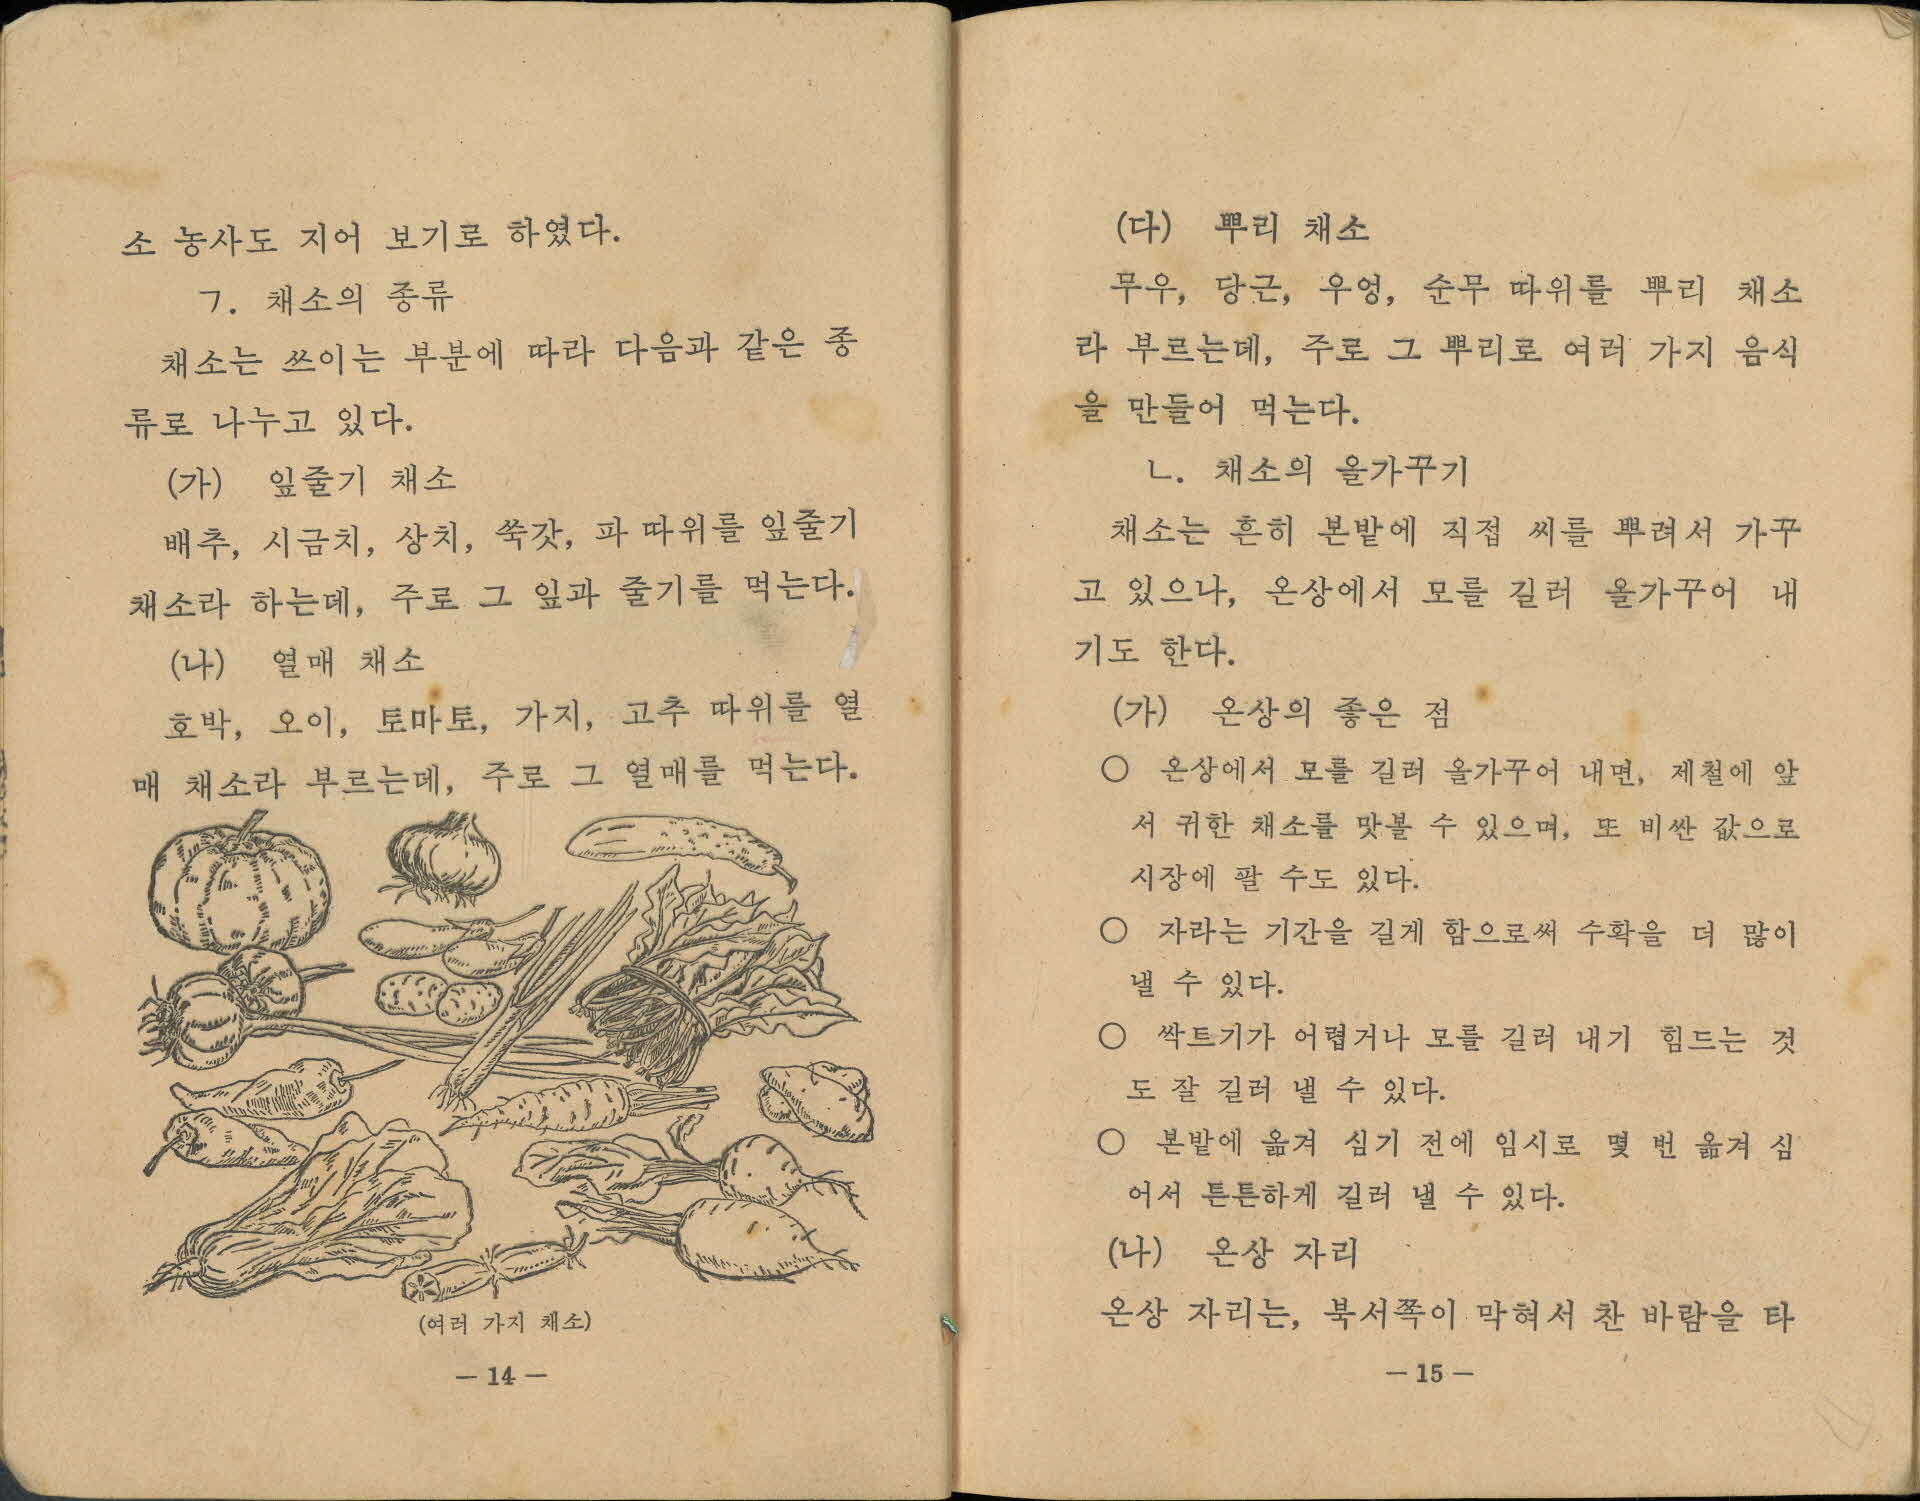 소 농사도 지어 보기로 하였다.
ㄱ. 채소의 종류
채소는 쓰이는 부분에 따라 다음과 같은 종
류로 나누고 있다.
(가) 잎줄기 채소
배추, 시금치, 상치, 쑥갓, 파 따위를 잎줄기
채소라 하는데, 주로 그 잎과 줄기를 먹는다.
(나) 열매 채소
호박, 오이, 토마토, 가지, 고추 따위를 열
매 채소라 부르는데, 주로 그 열매를 먹는다.
(여러 가지 채소)
— 14 —
(다) 뿌리 채소
무우, 당근, 우엉, 순무 따위를 뿌리 채소
라 부르는데, 주로 그 뿌리로 여러 가지 음식
을 만들어 먹는다.
ㄴ. 채소의 올가꾸기
채소는 흔히 본밭에 직접 씨를 뿌려서 가꾸
고 있으나, 온상에서 모를 길러 올가꾸어 내
기도 한다.
(가) 온상의 좋은 점
○ 온상에서 모를 길러 올가꾸어 내면, 제철에 앞
서 귀한 채소를 맛볼 수 있으며, 또 비싼 값으로
시장에 팔 수도 있다.
○ 자라는 기간을 길게 함으로써 수확을 더 많이
낼 수 있다.
○ 싹트기가 어렵거나 모를 길러 내기 힘드는 것
도 잘 길러 낼 수 있다.
○ 본밭에 옮겨 심기 전에 임시로 몇 번 옮겨 심
어서 튼튼하게 길러 낼 수 있다.
(나) 온상 자리
온상 자리는, 북서쪽이 막혀서 찬 바람을 타
— 15 —